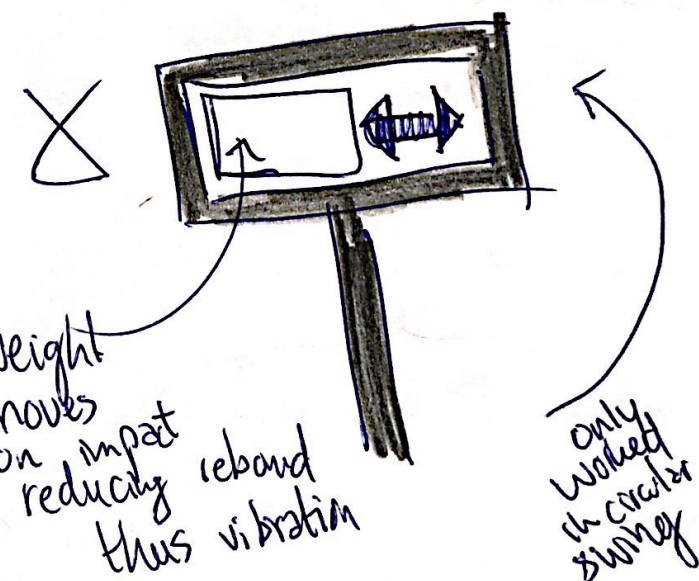 weight
moves
on impact
reducing rebound
thus vibration
only
worked
in circular
swing